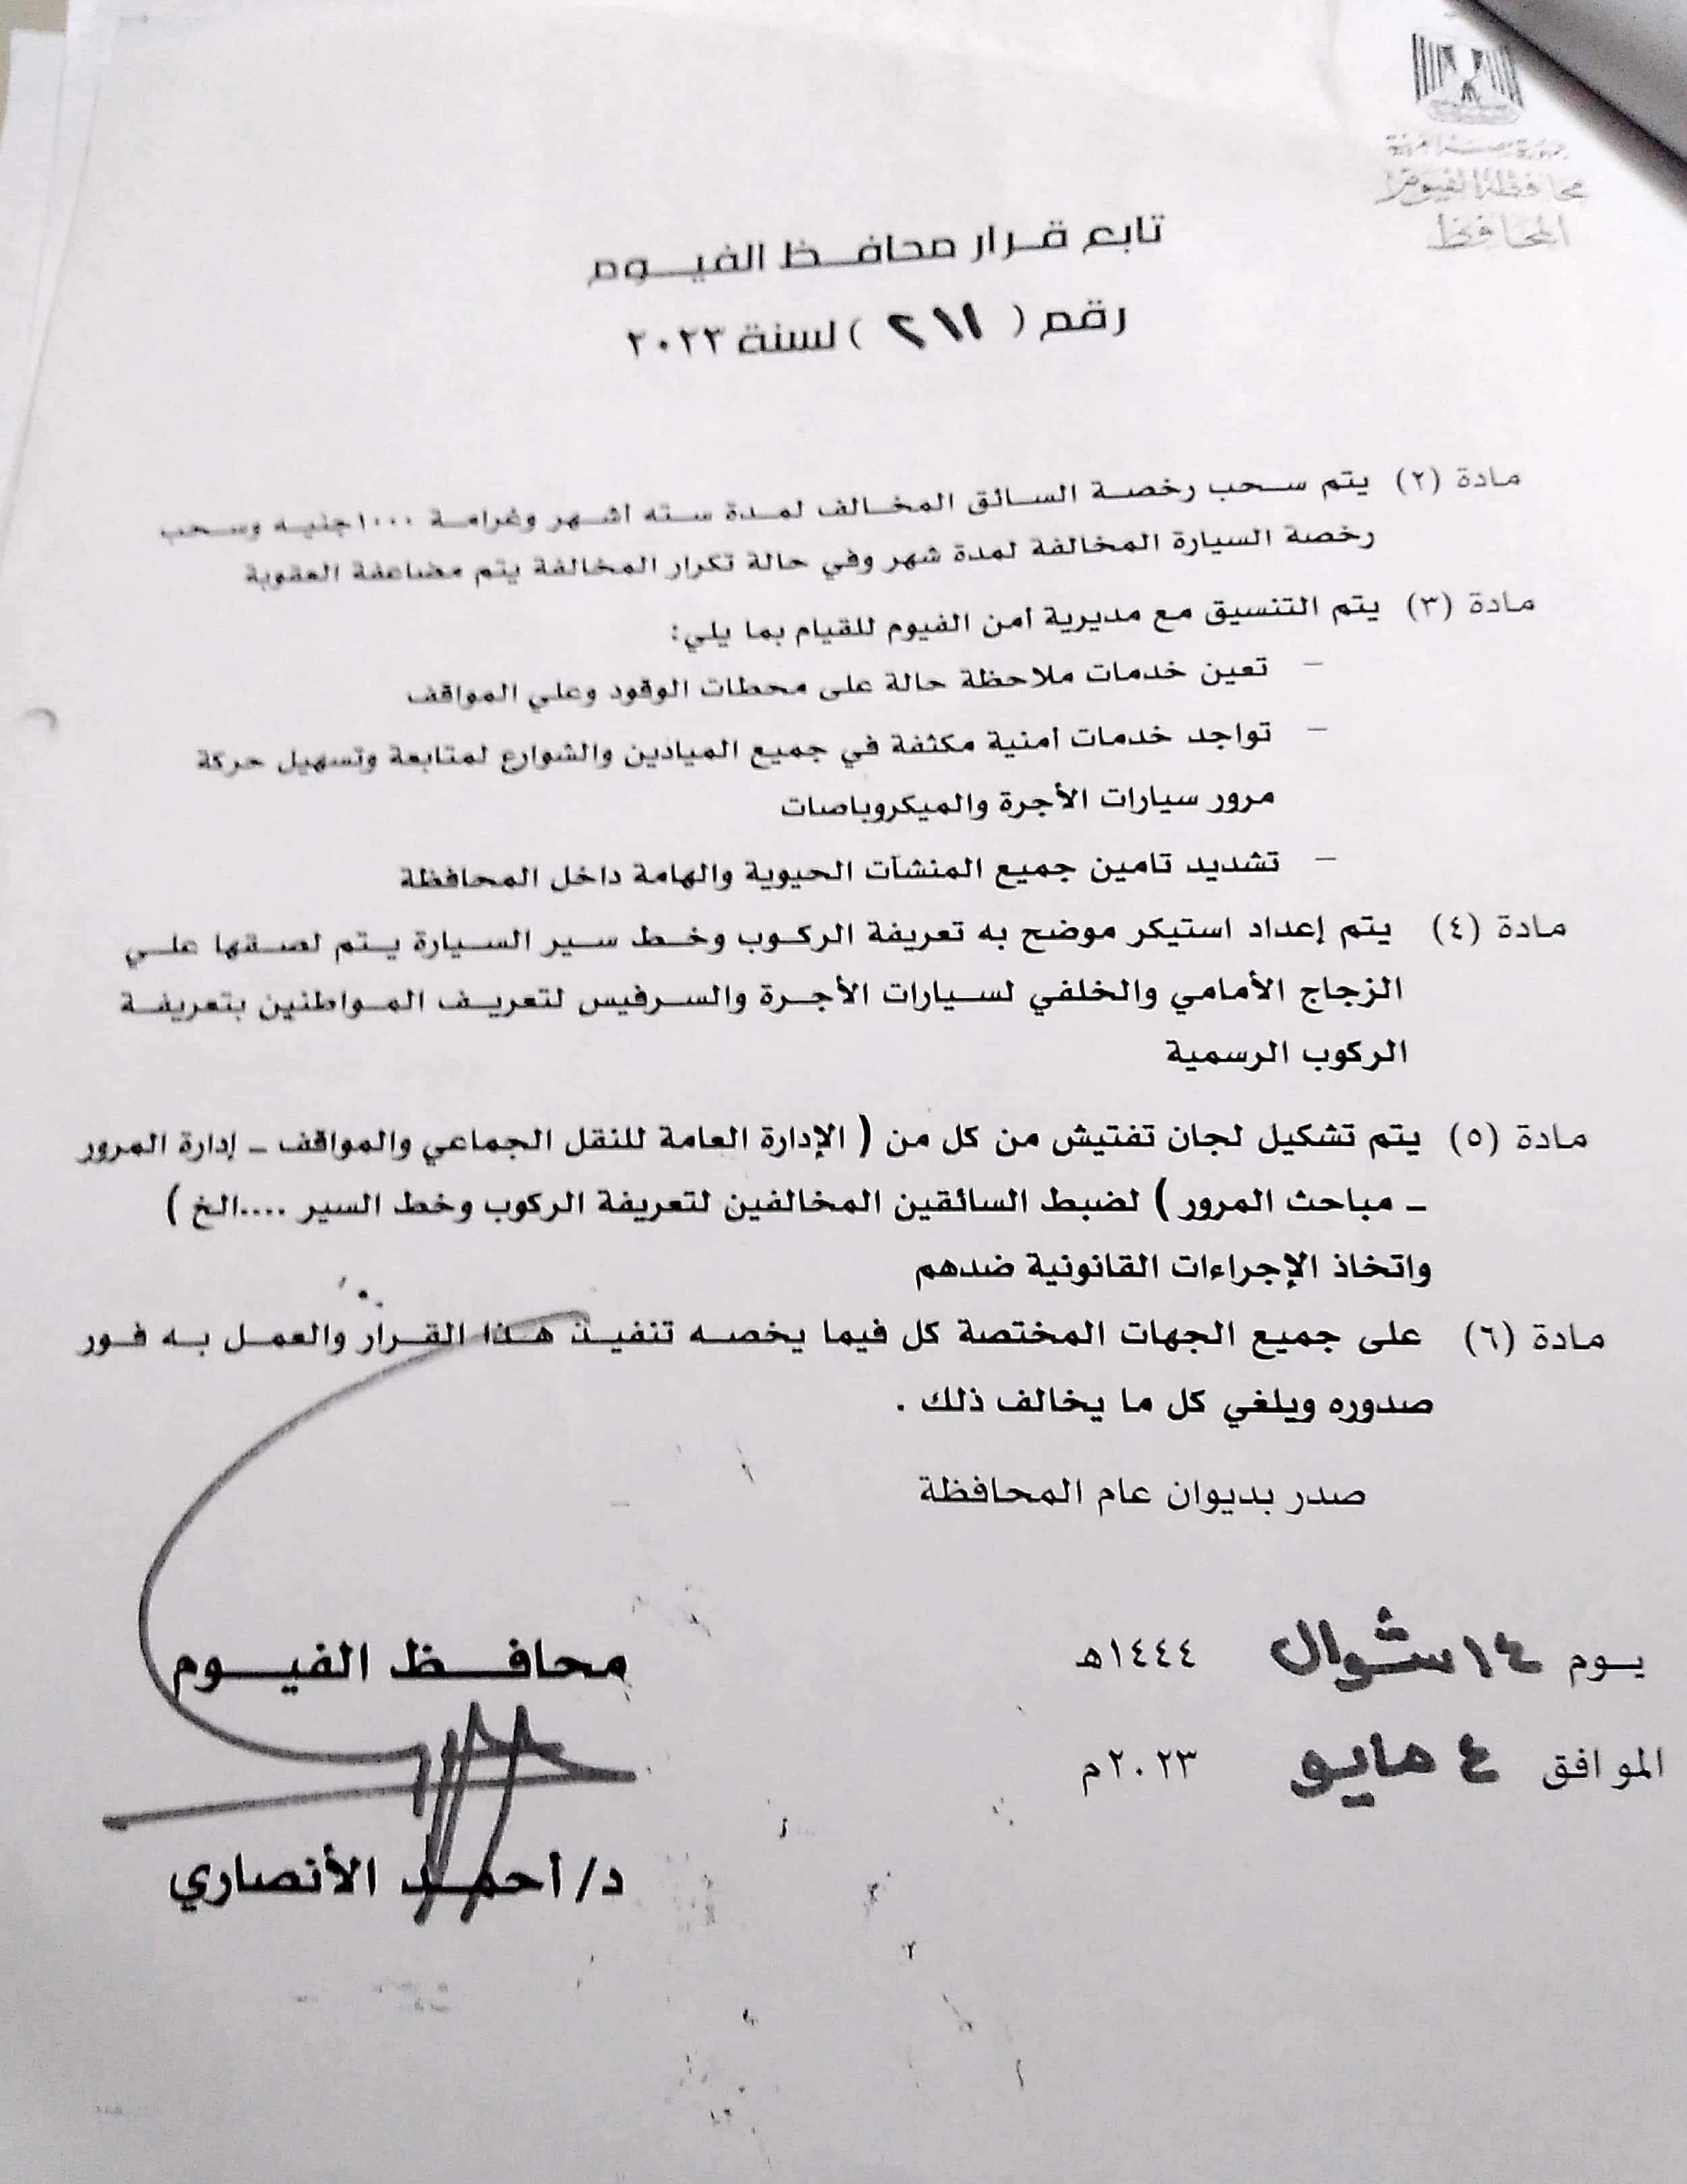 جمهورية مصر العربية
محافظة الفيوم
المحافظ
تابع قرار محافظ الفيوم
رقم ( ٢١١ ) لسنة ٢٠٢٣
مادة (٢) يتم سحب رخصة السائق المخالف لمدة سته أشهر وغرامة ١٠٠٠جنيه وسحب
رخصة السيارة المخالفة لمدة شهر وفي حالة تكرار المخالفة يتم مضاعفة العقوبة
مادة (٣) يتم التنسيق مع مديرية أمن الفيوم للقيام بما يلي:
– تعين خدمات ملاحظة حالة على محطات الوقود وعلي المواقف
– تواجد خدمات أمنية مكثفة في جميع الميادين والشوارع لمتابعة وتسهيل حركة
مرور سيارات الأجرة والميكروباصات
– تشديد تامين جميع المنشآت الحيوية والهامة داخل المحافظة
مادة (٤) يتم إعداد استيكر موضح به تعريفة الركوب وخط سير السيارة يتم لصقها علي
الزجاج الأمامي والخلفي لسيارات الأجرة والسرفيس لتعريف المواطنين بتعريفة
الركوب الرسمية
مادة (٥) يتم تشكيل لجان تفتيش من كل من ( الإدارة العامة للنقل الجماعي والمواقف – إدارة المرور
– مباحث المرور ) لضبط السائقين المخالفين لتعريفة الركوب وخط السير ....الخ )
واتخاذ الإجراءات القانونية ضدهم
مادة (٦) على جميع الجهات المختصة كل فيما يخصه تنفيذ هذا القرار والعمل به فور
صدوره ويلغي كل ما يخالف ذلك .
صدر بديوان عام المحافظة
يوم ١٤ شوال ١٤٤٤هـ
الموافق ٤ مايو ٢٠٢٣م
محافظ الفيوم
د/ أحمد الأنصاري